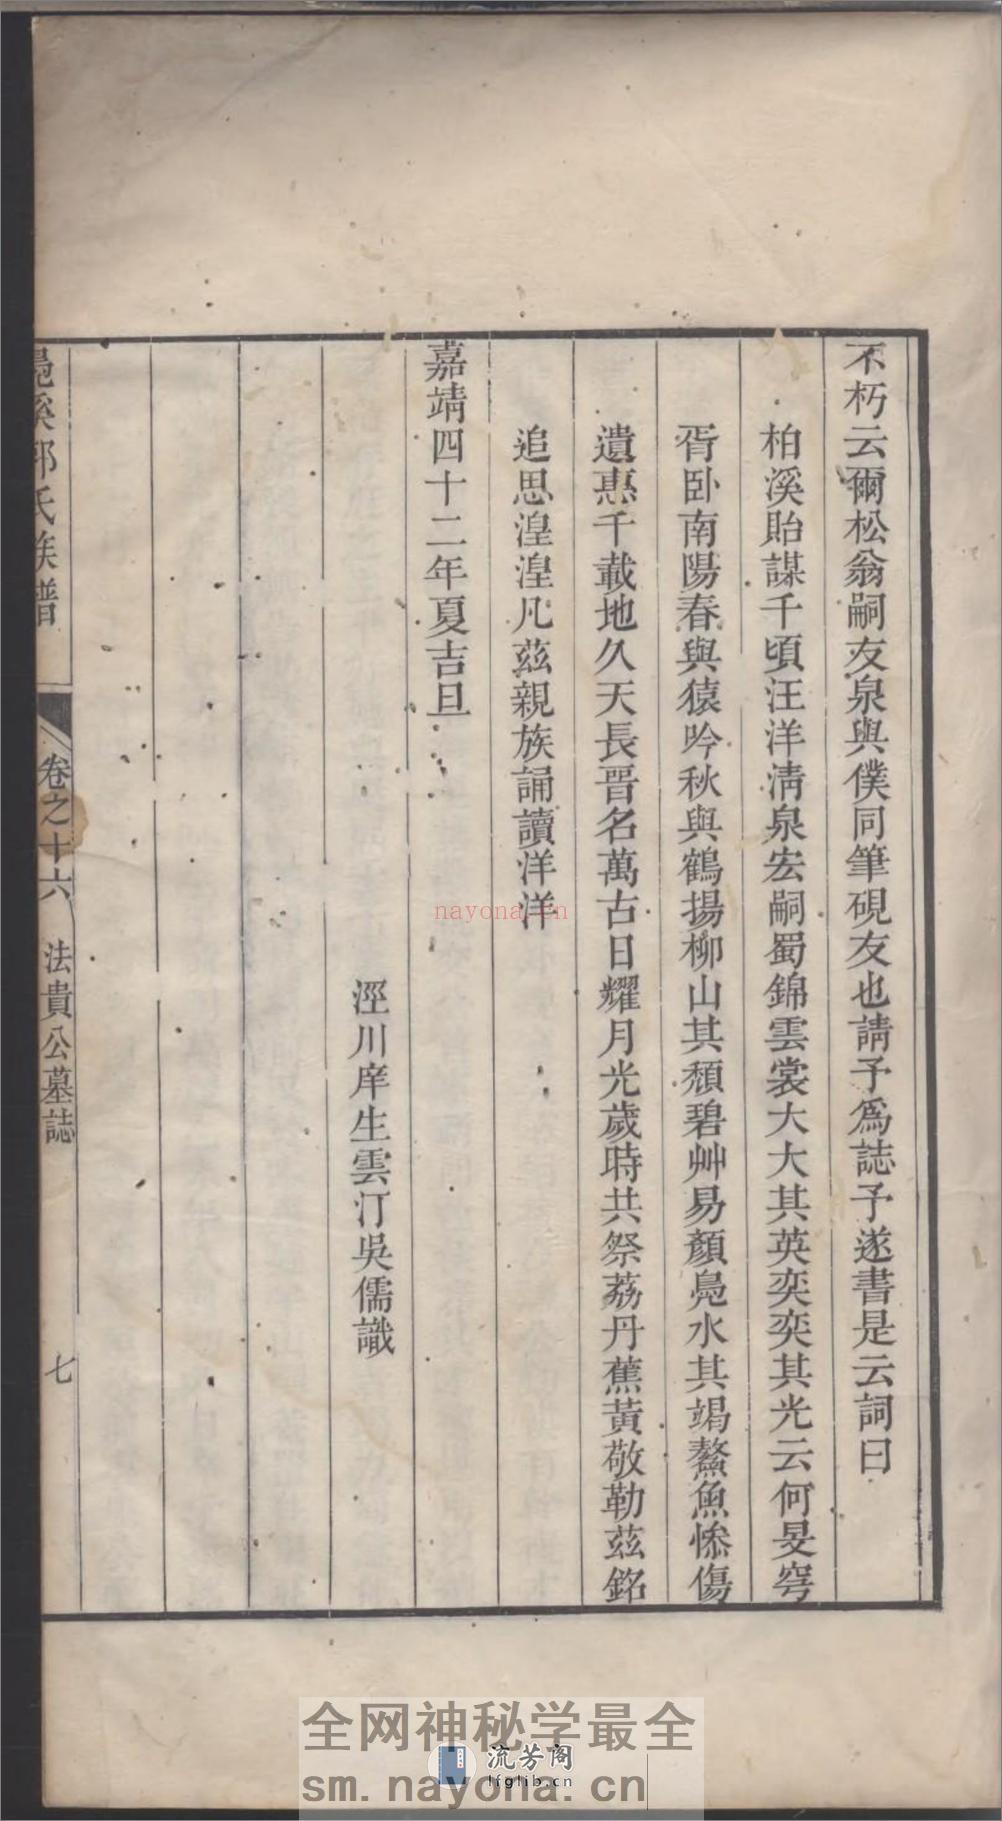 不朽云爾松翁嗣友泉與僕同筆硯友也請予爲誌予遂書是云詞曰
柏溪貽謀千頃汪洋淸泉宏嗣蜀錦雲裳大大其英奕奕其光云何旻穹
胥卧南陽春與猿吟秋與鶴揚柳山其頹碧艸易顏鳧水其竭鰲魚慘傷
遺惠千載地久天長晋名萬古日耀月光歲時共祭荔丹蕉黃敬勒茲銘
追思湟湟凡茲親族誦讀洋洋
嘉靖四十二年夏吉旦
涇川庠生雲汀吳儒識
溪 氏族譜
卷之十六 法貴公墓誌 七
nayona.cn
全网神秘学最全
流芳阁
lfglib.cn
sm.nayona.cn